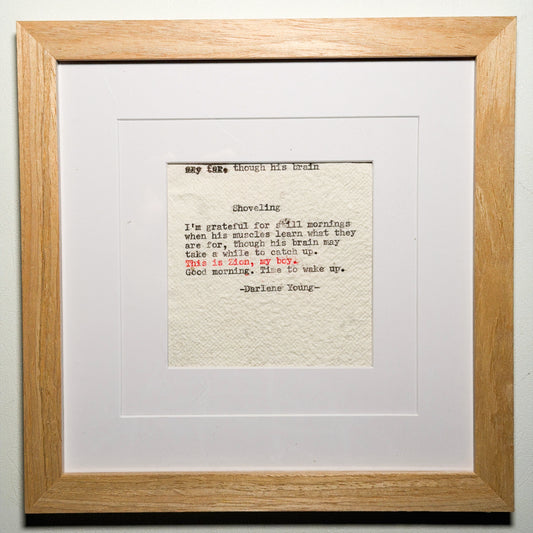 though his brain
Shoveling
I'm grateful for still mornings
when his muscles learn what they
are for, though his brain may
take a while to catch up.
This is Zion, my boy.
Good morning. Time to wake up.
-Darlene Young-